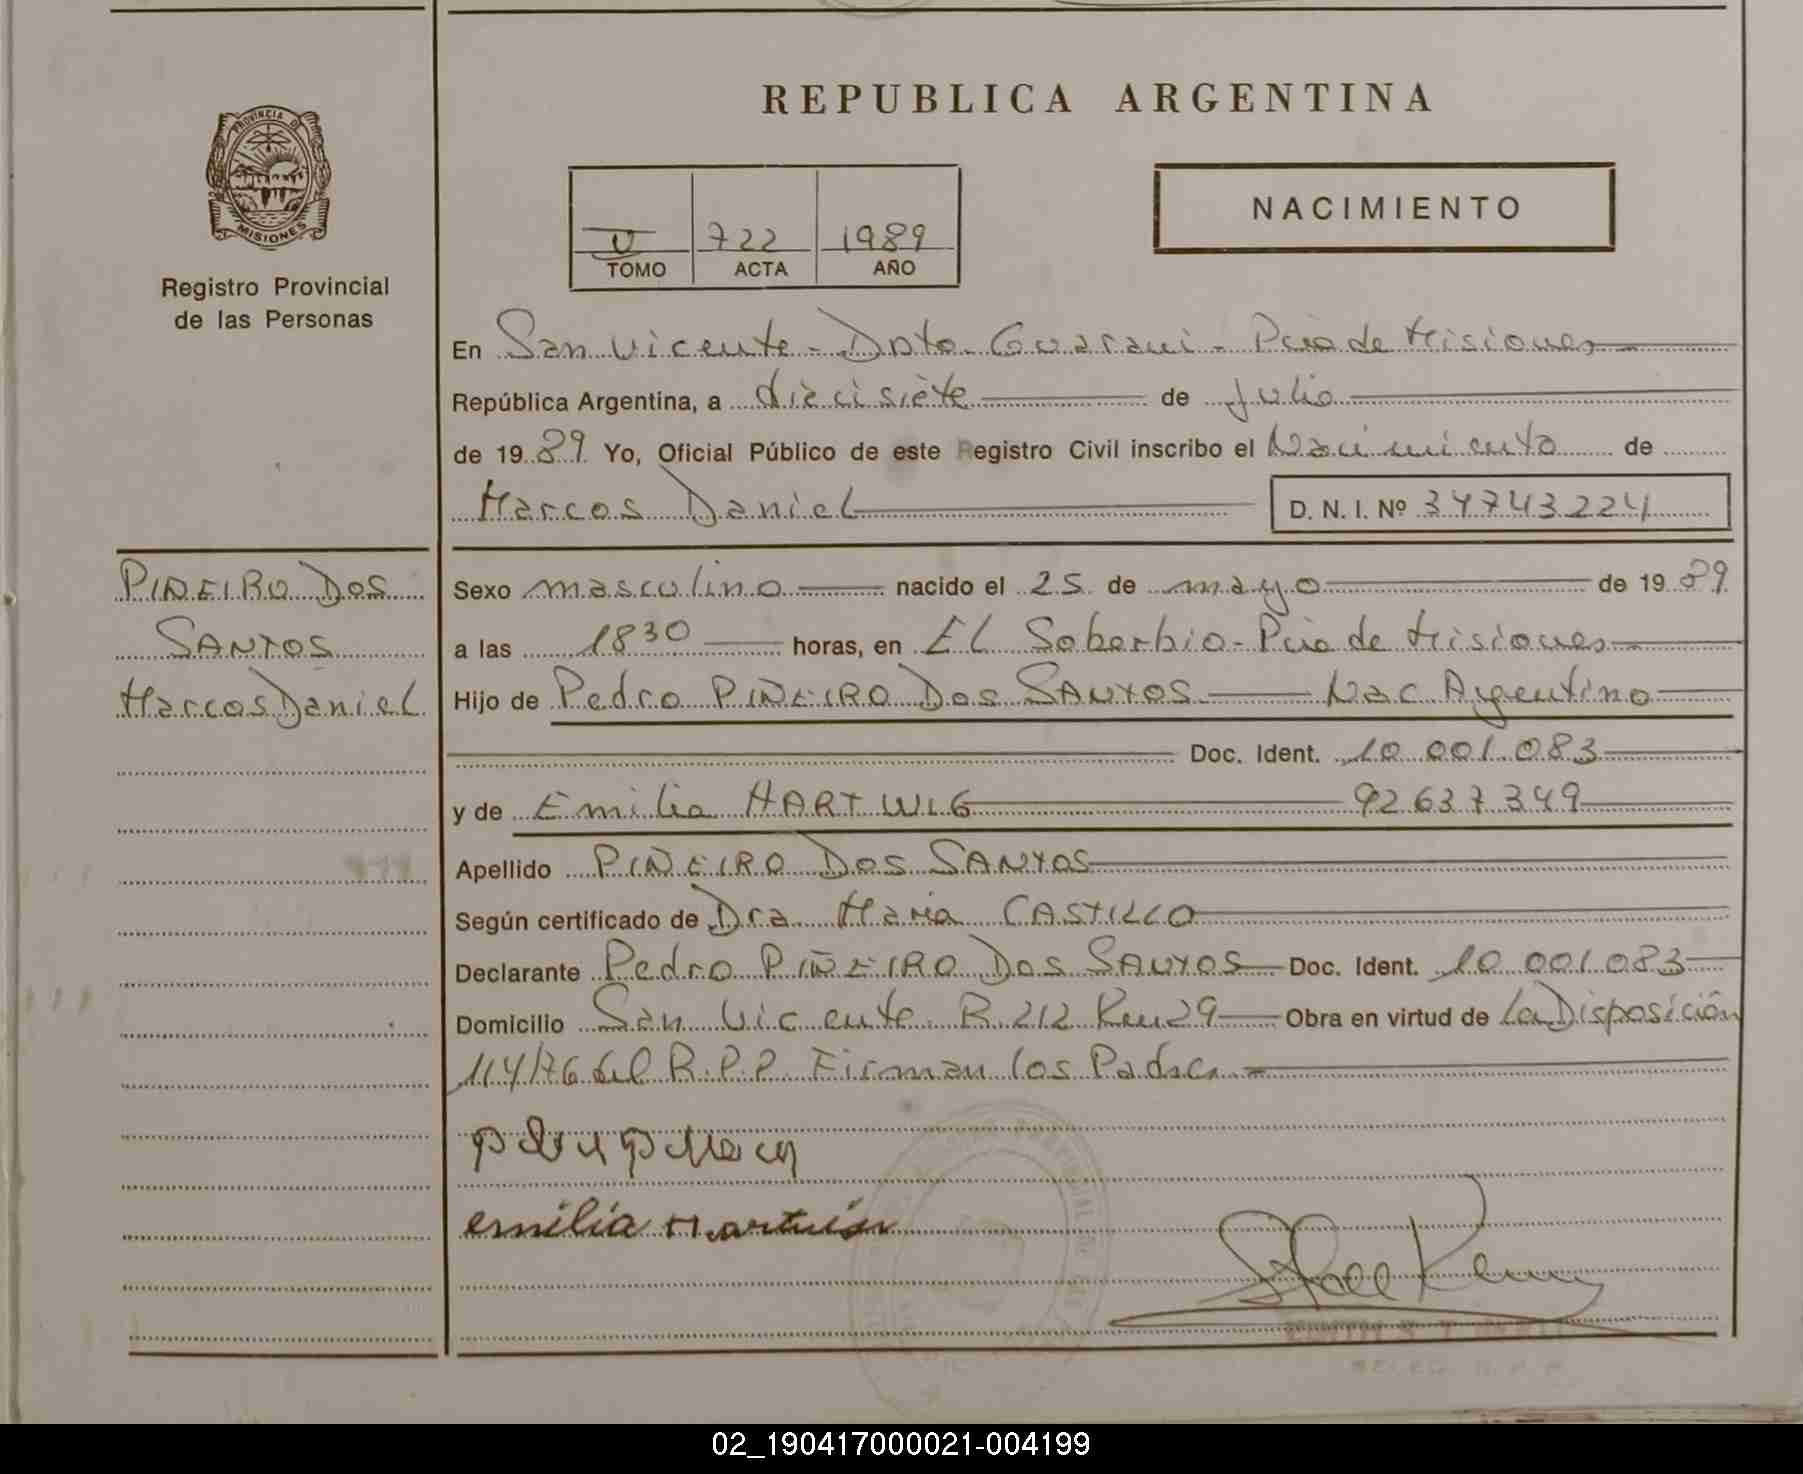 REPUBLICA ARGENTINA
PROVINCIA DE
MISIONES
Registro Provincial
de las Personas
NACIMIENTO
U 722 1989
TOMO ACTA AÑO
En San Vicente - Dpto. Guarani - Pcia de Misiones
República Argentina, a diecisiete de Julio
de 1989 Yo, Oficial Público de este Registro Civil inscribo el Nacimiento de
Marcos Daniel D. N. I. Nº 34743224
PIÑEIRO DOS
SANTOS
Marcos Daniel
Sexo masculino nacido el 25 de mayo de 1989
a las 1830 horas, en EL Soberbio - Pcia de Misiones
Hijo de Pedro PIÑEIRO DOS SANTOS Nac Argentino
Doc. Ident. 10.001.083
y de Emilia HARTWIG 92637349
Apellido PIÑEIRO DOS SANTOS
Según certificado de Dra Maria CASTILLO
Declarante Pedro PIÑEIRO DOS SANTOS Doc. Ident. 10.001.083
Domicilio San Vicente R.212 Km29 Obra en virtud de la Disposición
114/76 del R.P.P. Firman los Padres
emilia Hartwig
02_190417000021-004199